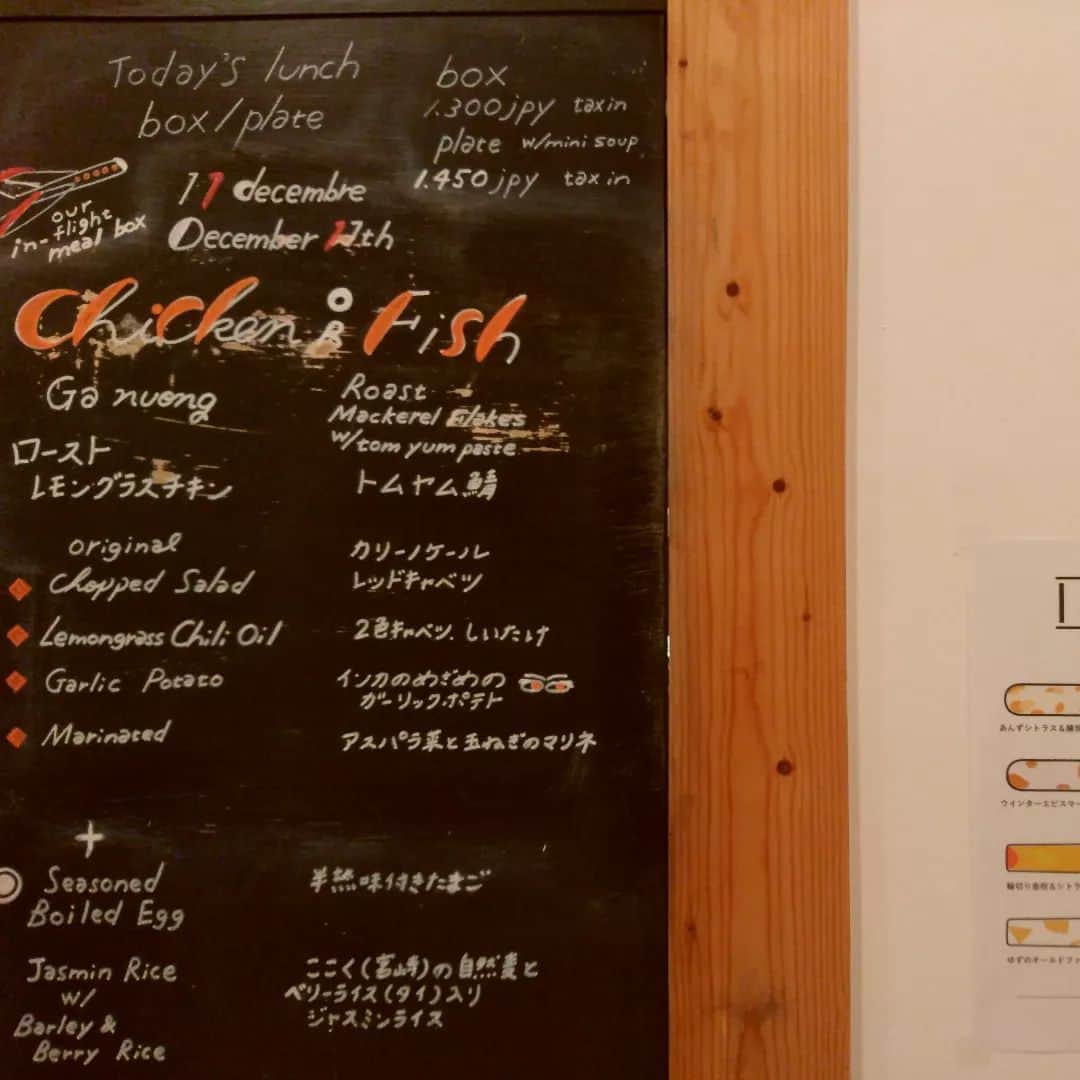 Today's lunch
box/plate
box
1.300 jpy tax in
plate w/mini soup
1.450 jpy tax in
our
in-flight
meal box
decembre
December
Chicken OR Fish
Ga nuong
ロースト
レモングラスチキン
Roast
Mackerel Flakes
w/tom yum paste
トムヤム鯖
original
Chopped Salad
カリーノケール
レッドキャベツ
Lemongrass Chili Oil
2色キャベツ、しいたけ
Garlic Potato
インカのめざめの
ガーリックポテト
Marinated
アスパラ菜と玉ねぎのマリネ
+
Seasoned
Boiled Egg
半熟味付きたまご
Jasmin Rice
w/
Barley &
Berry Rice
ここく(宮崎)の自然麦と
ベリーライス(タイ)入り
ジャスミンライス
あんずシトラス&
ウインターエピスマー
輪切り金柑&シトラ
ゆずのオールドファ